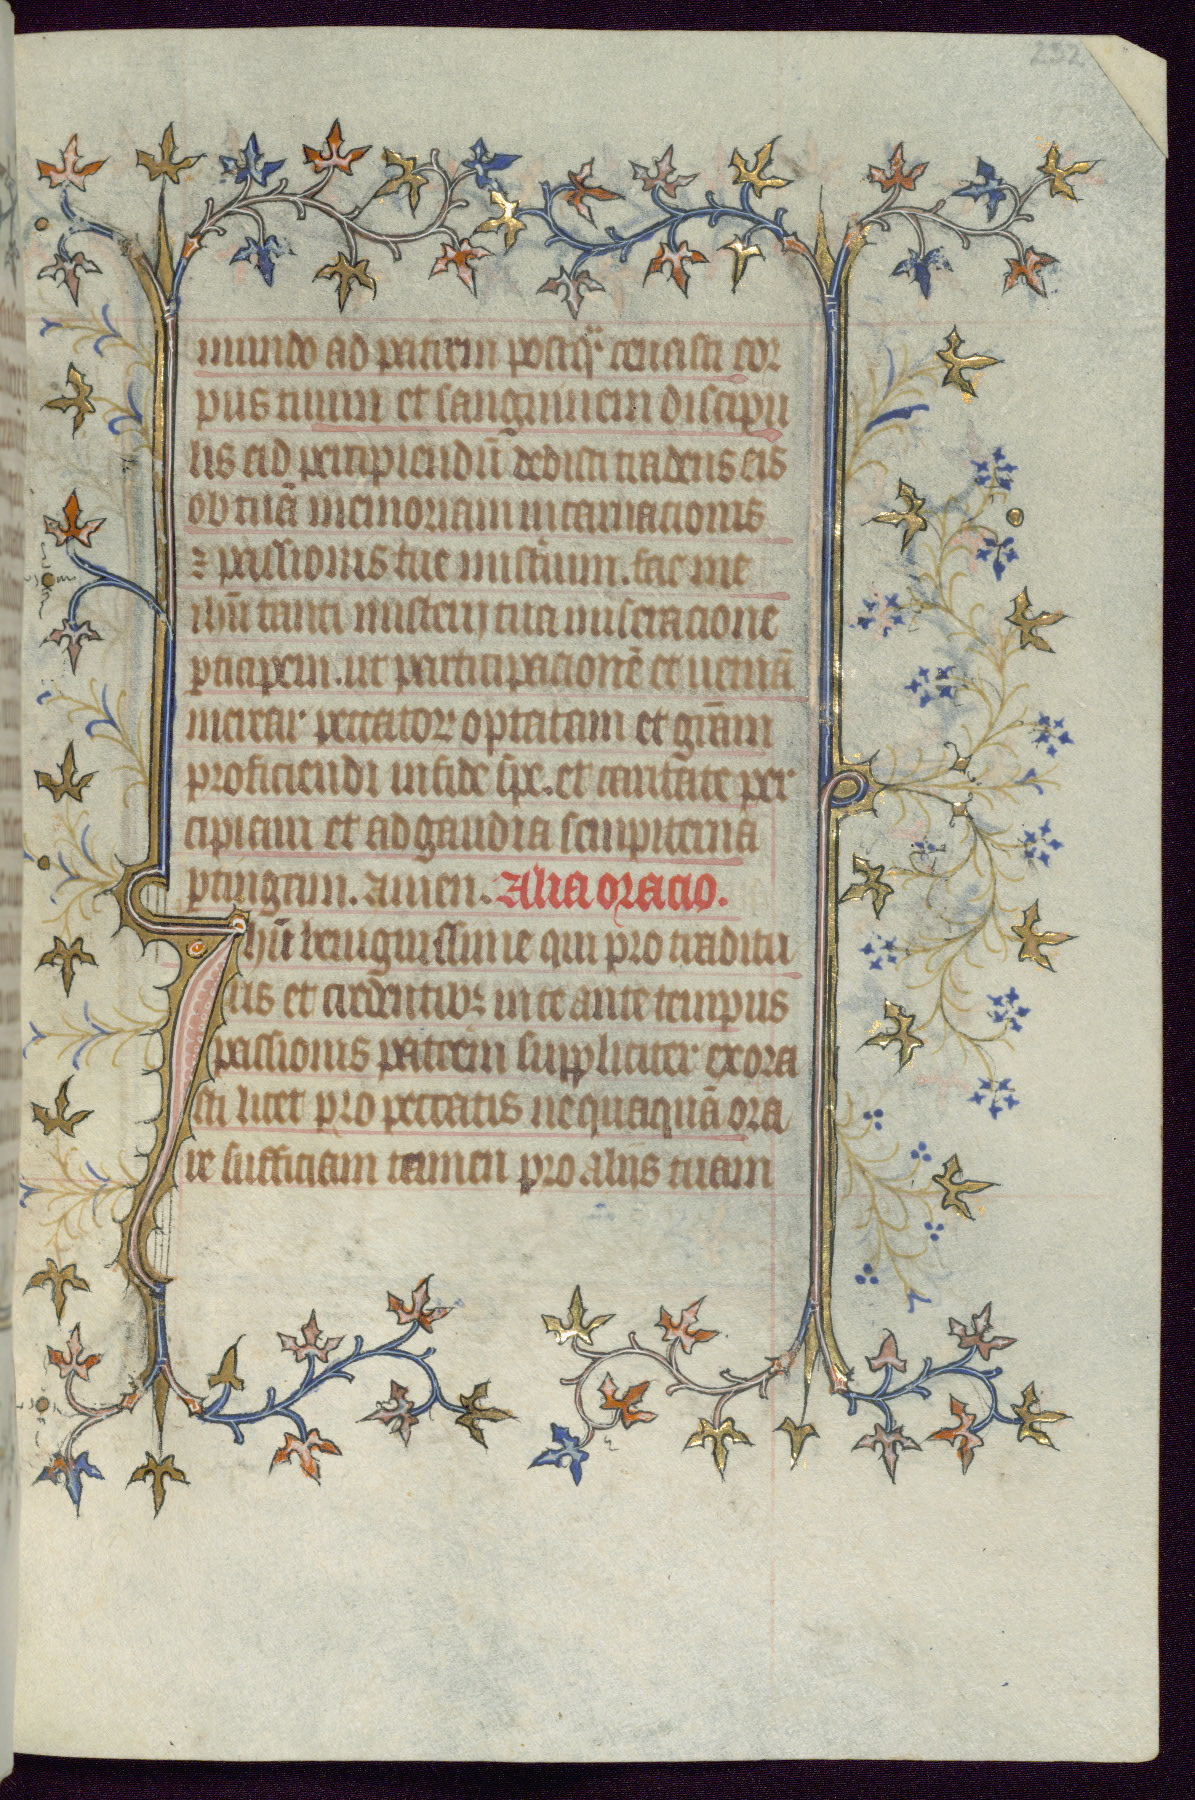 232
mundo ad patrem postq̃ cenasti cor
pus tuum et sanguinem discipu
lis ad percipiendũ dedisti tradens eis
ob tuã memoriam incarnacionis
⁊ passionis tue mistũum. fac me
ihũ tanti misterij tua miseracione
pticipem. ut participacionẽ et ueniã
merear peccator optatam et grãm
proficiendi in fide spe. et caritate per
cipiam et ad gaudia sempiterna
ptingam. amen. Alia oracio.
Ihũ benignissime qui pro traditu
ris et credentibꝫ in te ante tempus
passionis patrem suppliciter exora
sti licet pro peccatis nequaquã ora
re sufficiam tamen pro aliis tuam